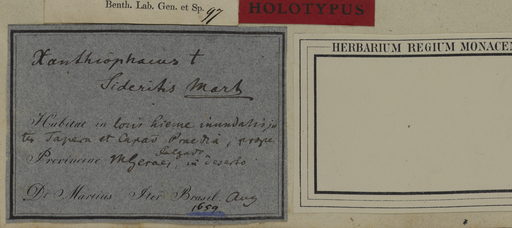 Benth. Lab. Gen. et Sp. 97
HOLOTYPUS
Xanthiophaeus †
Sideritis Mart
Habitat in locis hieme inundatis, in
ter Tapera et Praedia, prope
Salgado
Provinciae MGeraës, in deserto
Dr Martius Iter Brasil. Aug
1659
HERBARIUM REGIUM MONACEN